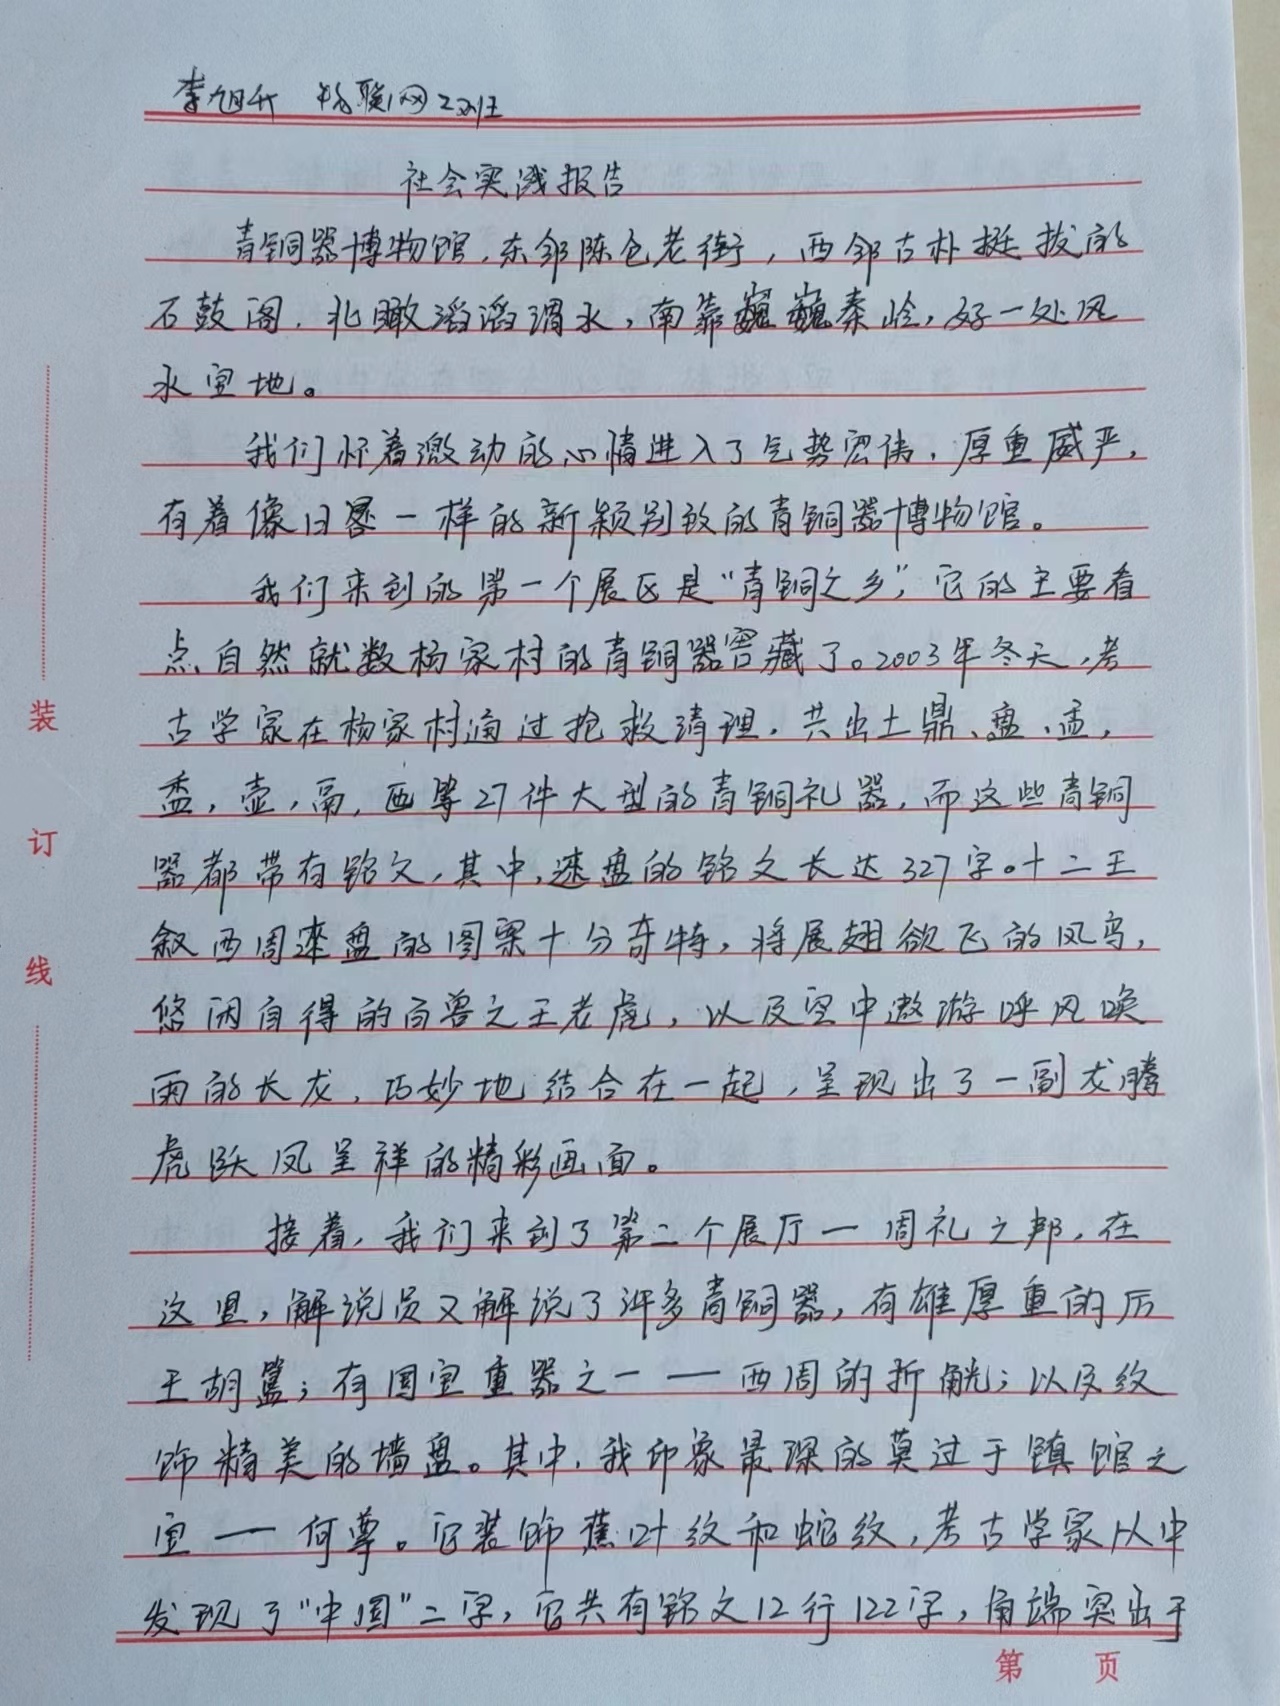 李旭升 物联网2班
社会实践报告
青铜器博物馆，东邻陈仓老街，西邻古朴挺拔的
石鼓阁，北瞰滔滔渭水，南靠巍巍秦岭，好一处风
水宝地。
我们怀着激动的心情进入了气势宏伟，厚重威严，
有着像日晷一样的新颖别致的青铜器博物馆。
我们来到的第一个展区是“青铜之乡”，它的主要看
点自然就数杨家村的青铜器窖藏了。2003年冬天，考
古学家在杨家村通过抢救清理，共出土鼎、盘、盂，
盉，壶，鬲，匜等27件大型的青铜礼器，而这些青铜
器都带有铭文，其中，逨盘的铭文长达327字。十二王
叙西周逨盘的图案十分奇特，将展翅欲飞的凤鸟，
悠闲自得的百兽之王老虎，以及空中遨游呼风唤
雨的长龙，巧妙地结合在一起，呈现出了一副龙腾
虎跃凤呈祥的精彩画面。
接着，我们来到了第二个展厅一周礼之邦，在
这里，解说员又解说了许多青铜器，有雄厚重的厉
王胡簋；有国宝重器之一——西周的折觥；以及纹
饰精美的墙盘。其中，我印象最深的莫过于镇馆之
宝——何尊。它装饰蕉叶纹和蛇纹，考古学家从中
发现了“中国”二字，它共有铭文12行122字，角端突出于
装
订
线
第 页